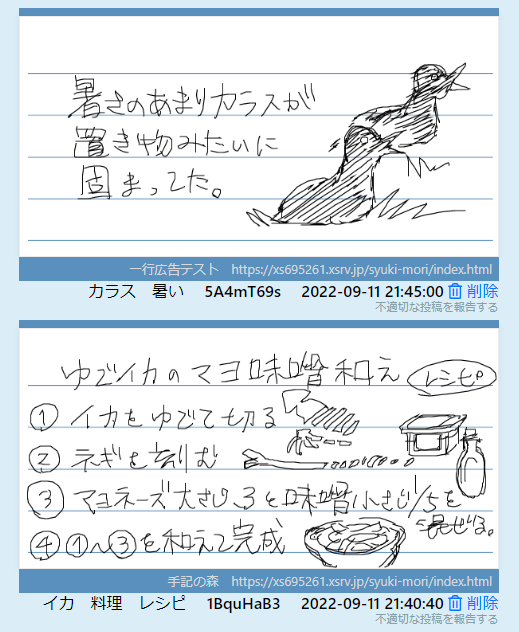 暑さのあまりカラスが
置き物みたいに
固まってた。
一行広告テスト https://xs695261.xsrv.jp/syuki-mori/index.html
カラス 暑い 5A4mT69s 2022-09-11 21:45:00 削除
不適切な投稿を報告する
ゆでイカのマヨ味噌和え レシピ
① イカをゆでて切る
② ネギを刻む
③ マヨネーズ大さじ3と味噌小さじ1/5を
混ぜる。
④ ①〜③を和えて完成
手記の森 https://xs695261.xsrv.jp/syuki-mori/index.html
イカ 料理 レシピ 1BquHaB3 2022-09-11 21:40:40 削除
不適切な投稿を報告する